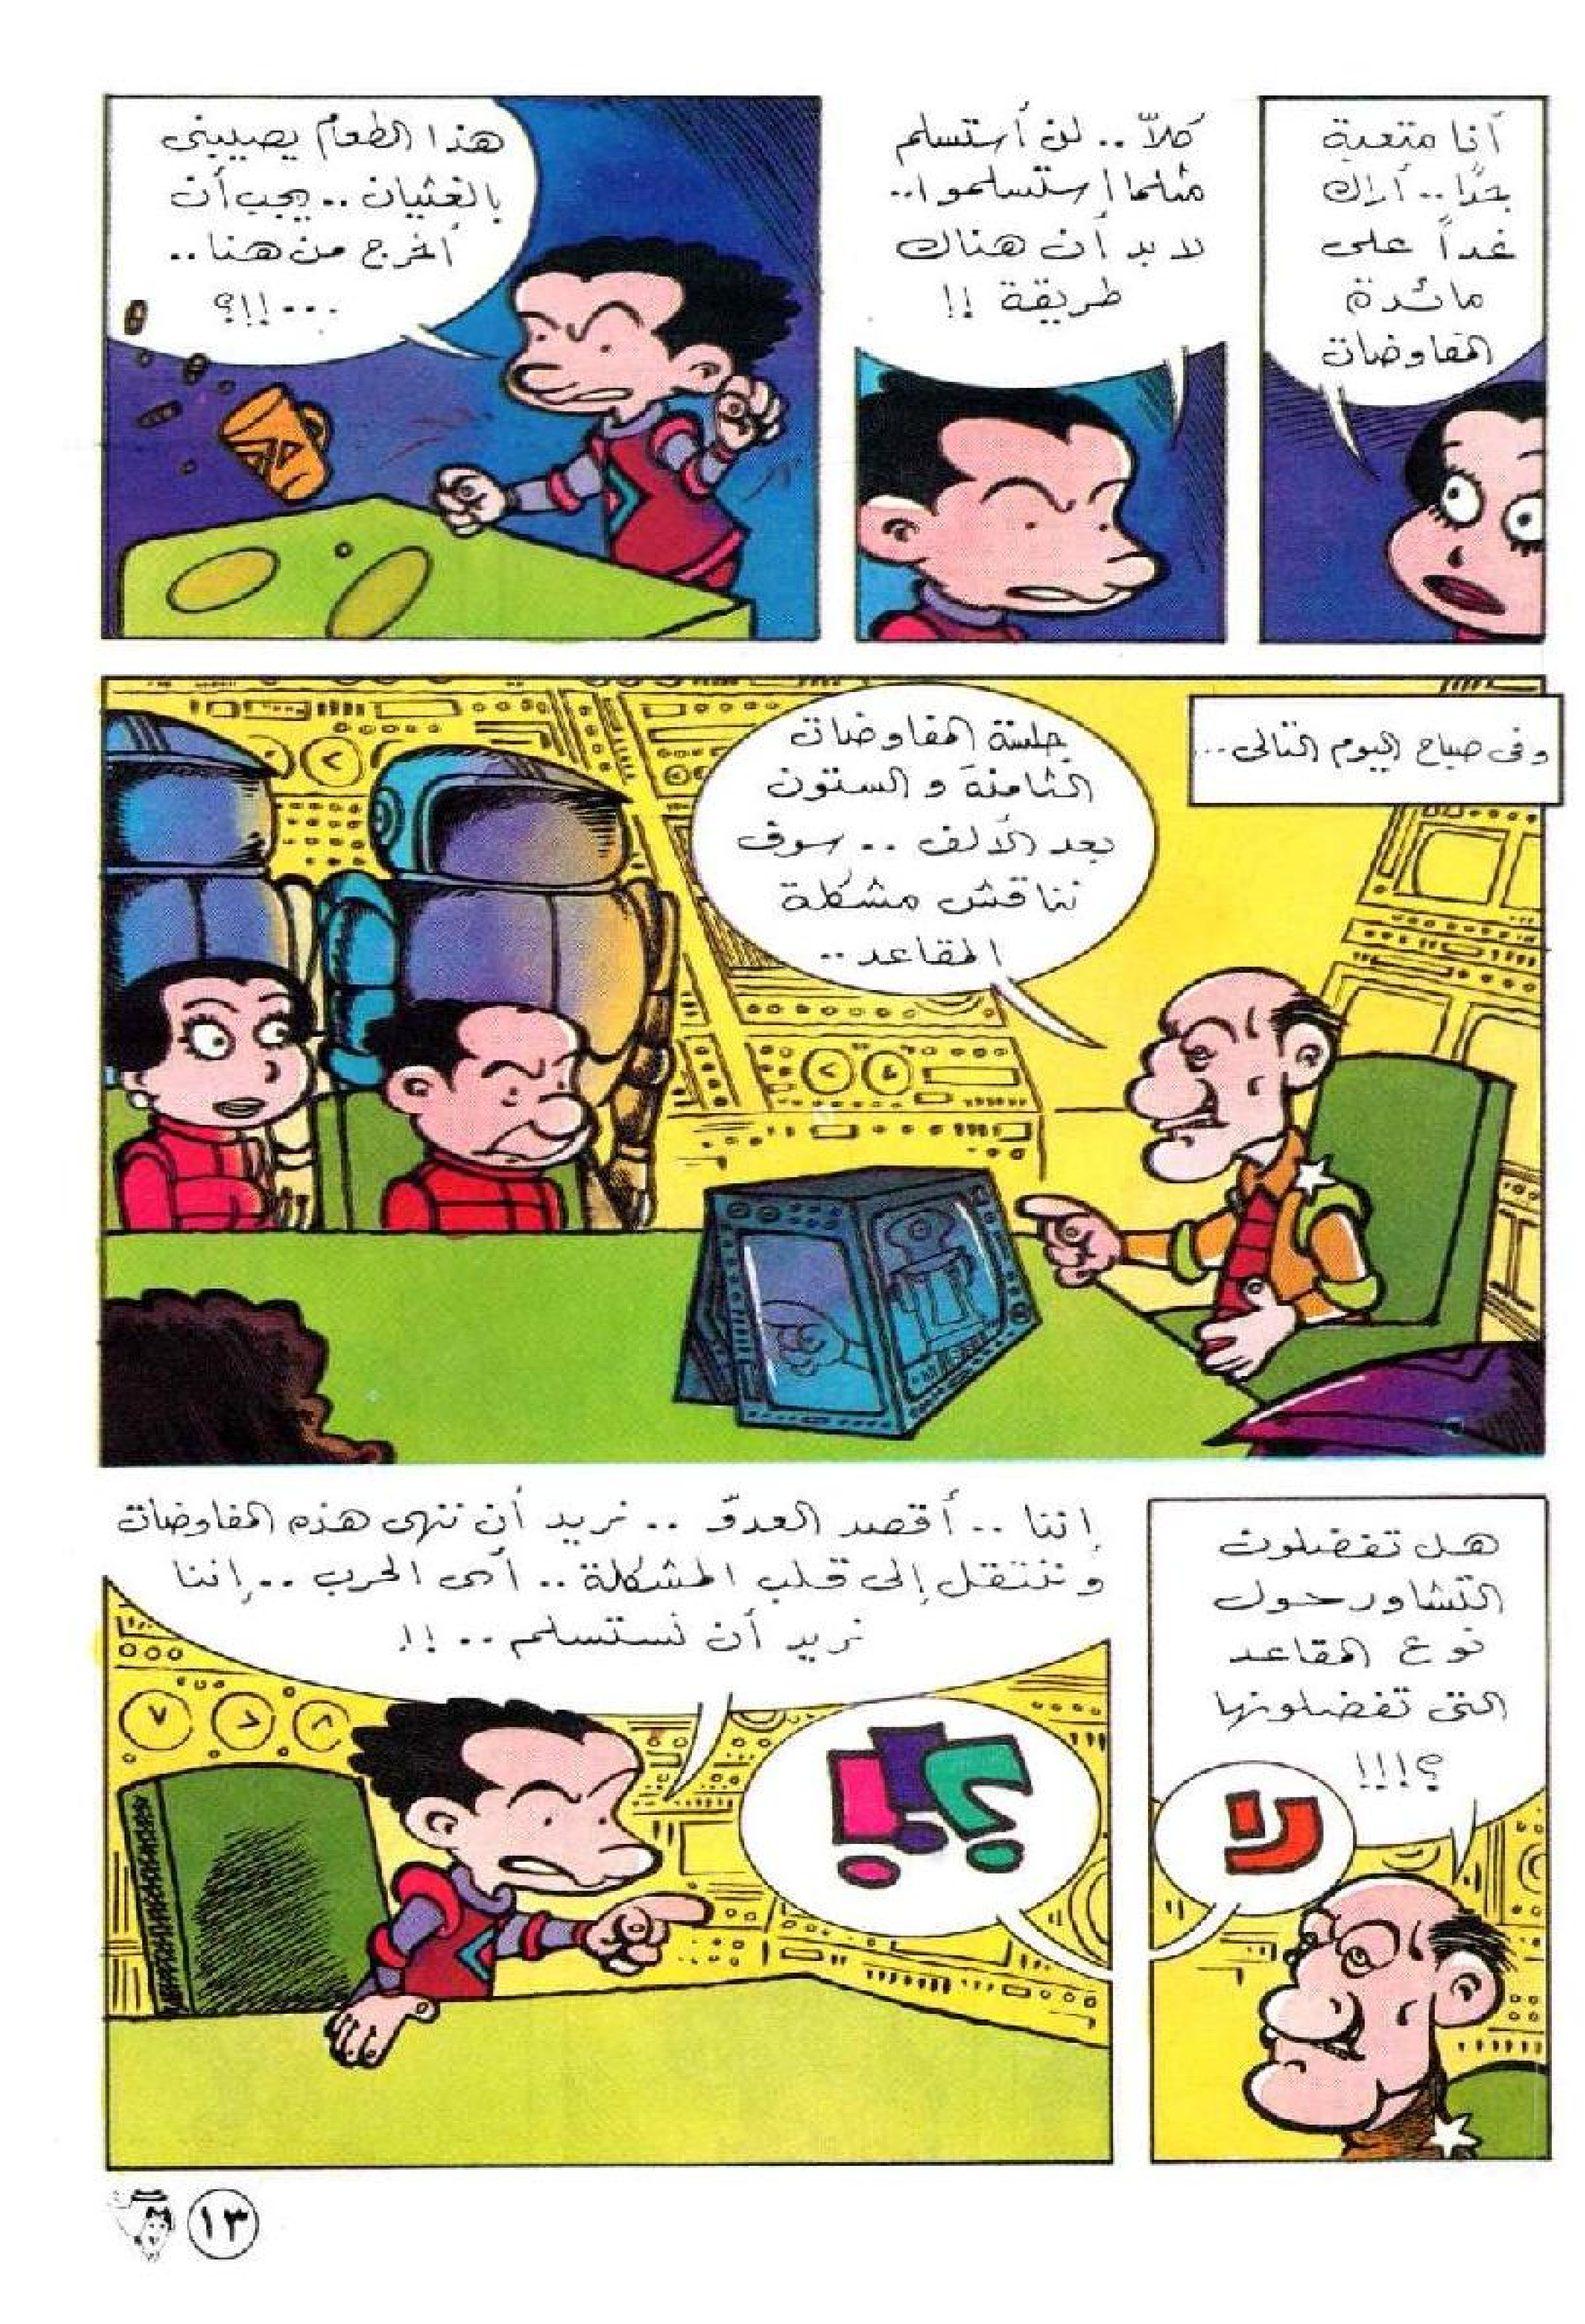 أنا متعبة
جدًا.. أراك
غداً على
مائدة
المفاوضات
كلاّ.. لن أستسلم
مثلما إستسلموا..
لا بد أن هناك
طريقة !!
هذا الطعام يصيبنى
بالغثيان.. يجب أن
أخرج من هنا..
...!!؟
وفى صباح اليوم التالى...
جلسة المفاوضات
الثامنة و الستون
بعد الألف.. سوف
نناقش مشكلة
المقاعد..
هل تفضلون
التشاور حول
نوع المقاعد
التى تفضلونها
؟!!!
إننا.. أقصد العدوّ.. نريد أن ننهى هذه المفاوضات
وننتقل إلى قلب المشكلة.. أى الحرب.. إننا
نريد أن نستسلم..!!
؟!!
١٣